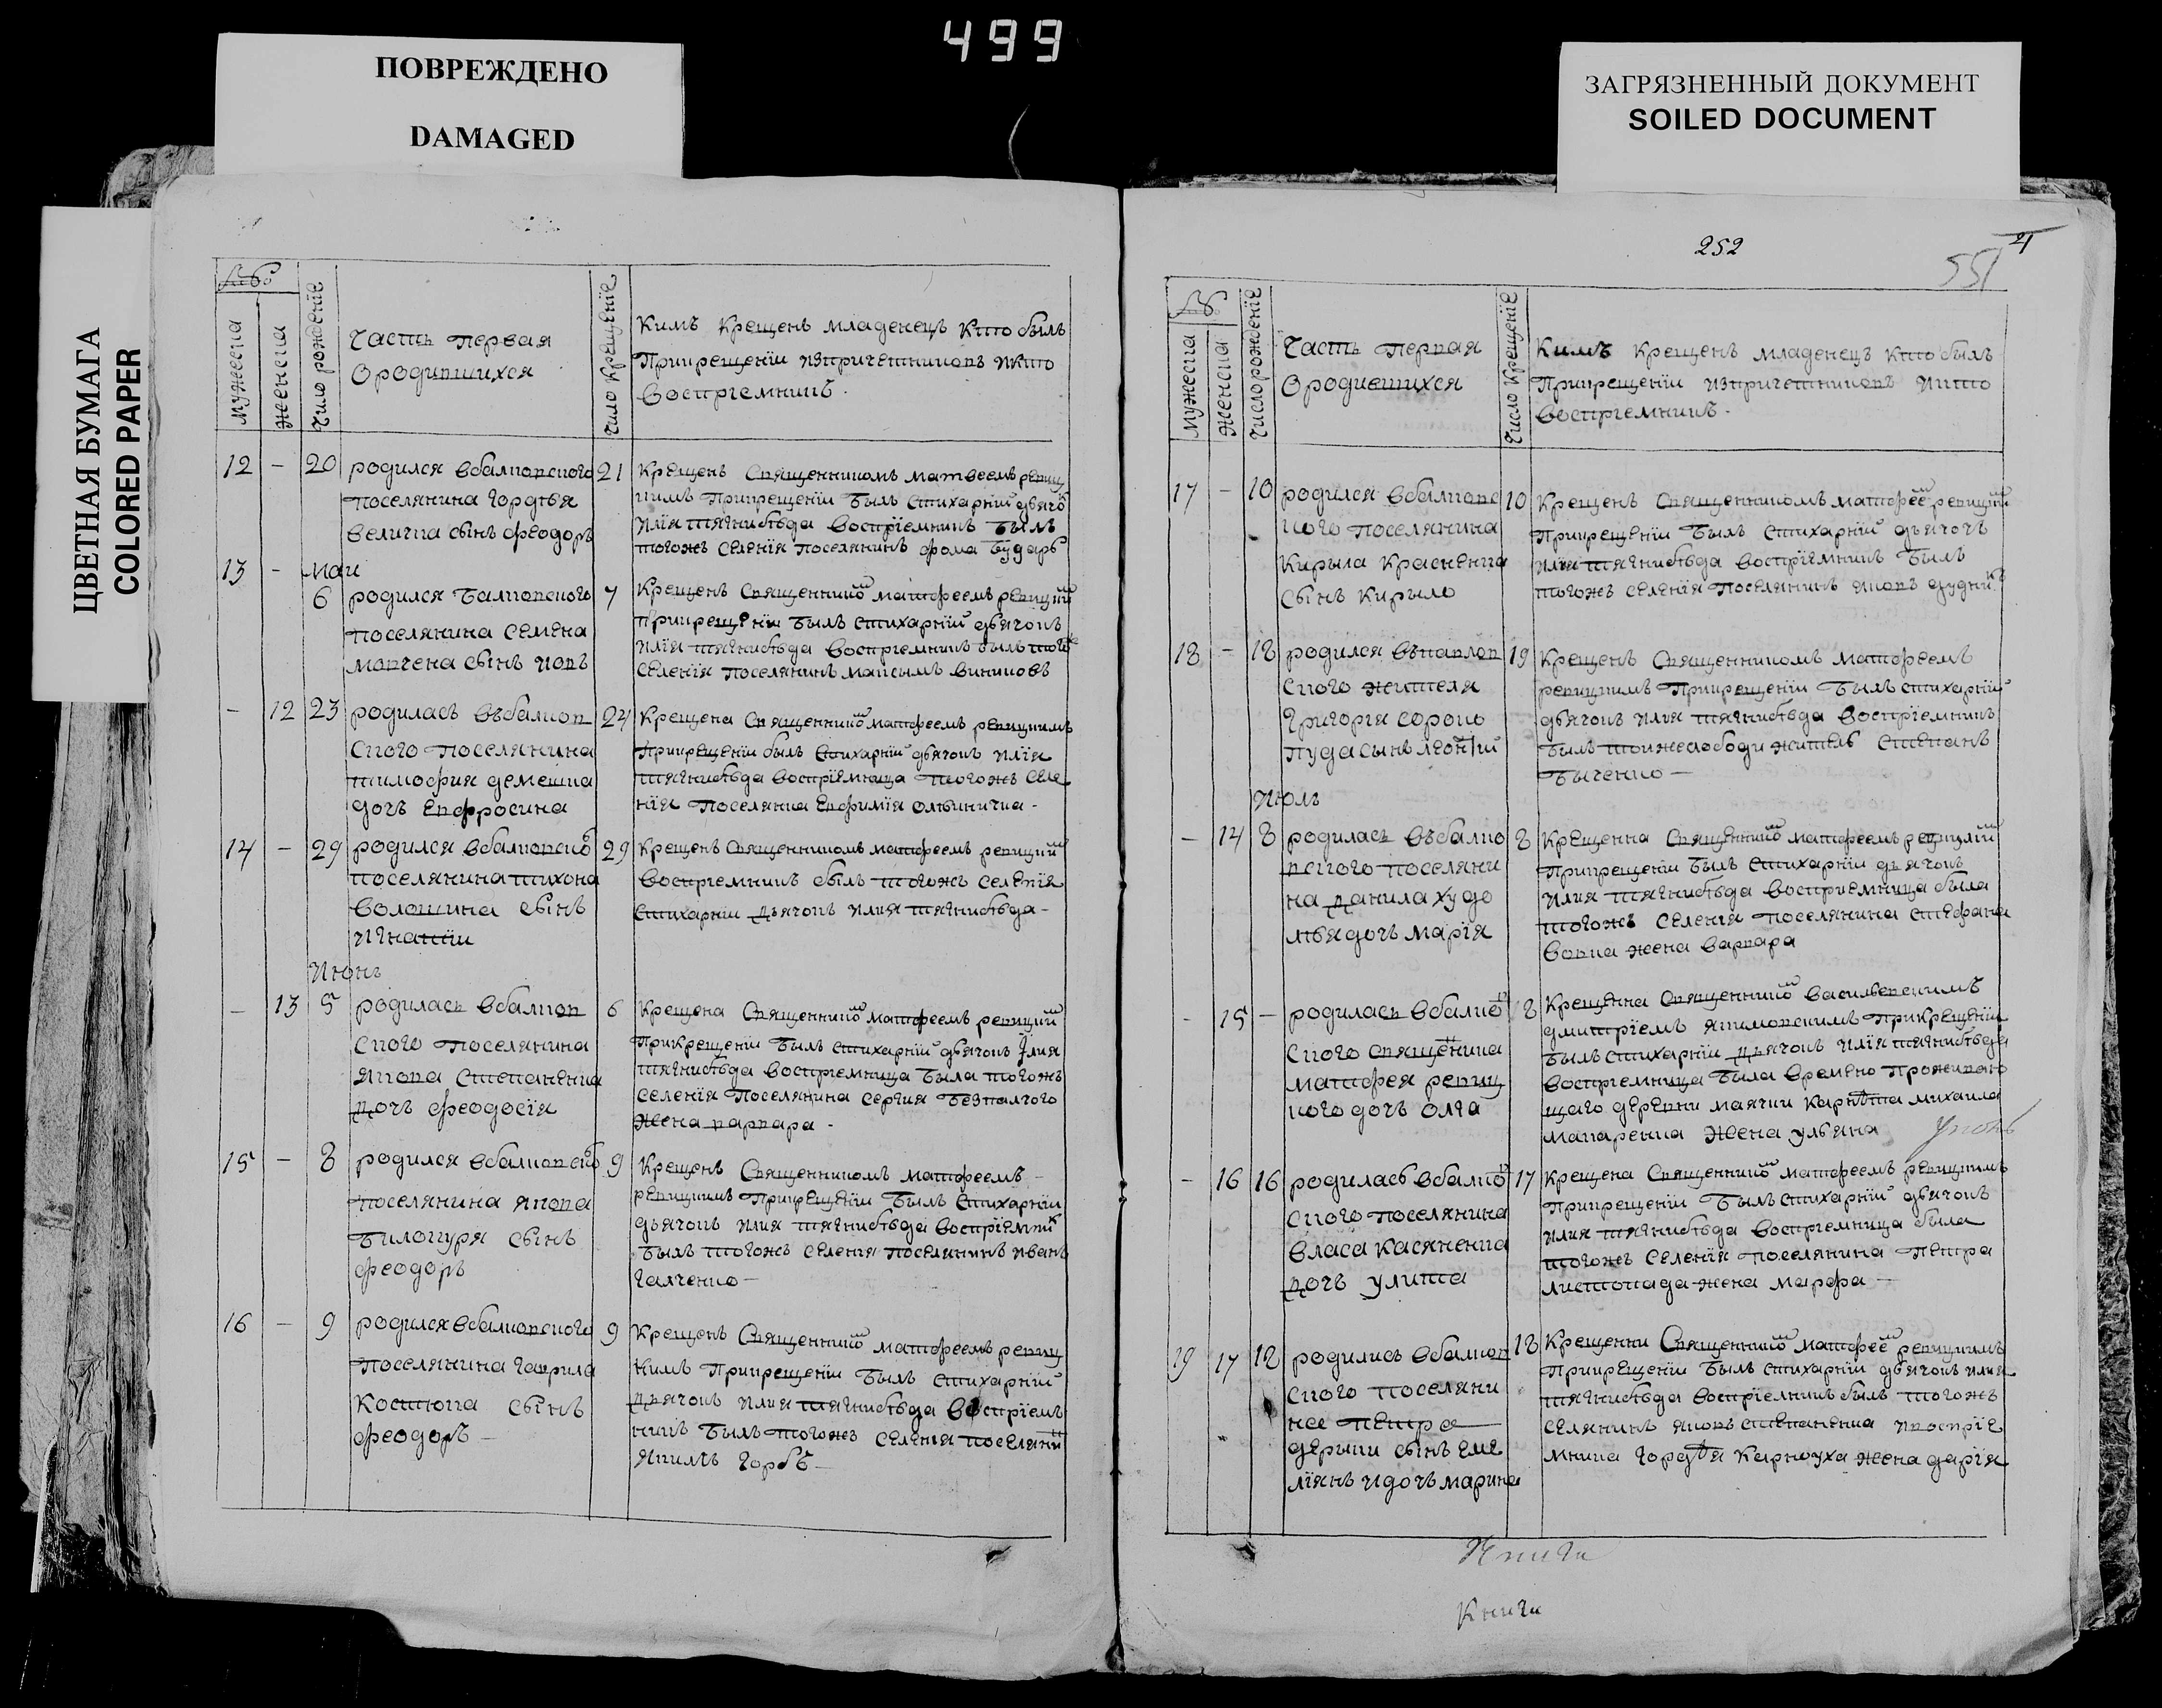 499
ПОВРЕЖДЕНО
DAMAGED
ЗАГРЯЗНЕННЫЙ ДОКУМЕНТ
SOILED DOCUMENT
ЦВЕТНАЯ БУМАГА
COLORED PAPER
№
мужеска
женска
Число рожденїе
Часть первая
Ородившихся
Число Крещенїе
Кимъ Крещенъ младенецъ Кто былъ
Прикрещенїи изпричетниковъ икто
воспрiемникъ.
12 – 20 родился вбалковского 21
поселянина гордѣя
величка сынъ феодоръ
Крещенъ Священникомъ матвеемъ ревиц
кимъ Прикрещенїи былъ стихарнїй дьячо
илїя тягнибѣда воспрїемникъ былъ
тогожъ селенїя поселянинъ фома бударь
13 – маи
6 родился балковского 7
поселянина семена
мовчена сынъ иовъ
Крещенъ Священнико матфеемъ ревицкй
прикрещенїи былъ стихарнїй дьячокъ
илїя тягнибѣда воспрiемникъ былъ того
селенїя поселянинъ максымъ винниковъ
– 12 23 родиласъ въбалков 24
ского поселянина
тимофия демешка
дочъ Евфросина
Крещена священнико матфеемъ ревицкимъ
прикрещенїи былъ стихарнїй дьячокъ илїя
тягнибѣда воспрїемница тогожъ селе
нїя поселянка Евфимїя олѣйничка -
14 – 29 родился вбалковско 29
поселянина тихона
волошина сынъ
игнатїи
Крещенъ Священникомъ матфеемъ ревицкй
воспрiемникъ былъ тогожъ селенїя
стихарнїи дьячокъ илия тягнибѣда -
Июнь
– 13 5 родиласъ вбалков 6
ского поселянина
якова степаненка
дочъ феодосїя
Крещена Священнико матфеемъ ревицкй
Прикрещенїи былъ стихарнїй дьячокъ Илия
тягнибѣда воспрiемница была тогожъ
селенїя Поселянина сергия безпалчого
жена варвара -
15 – 8 родился вбалковско 9
поселянина якова
билокуря сынъ
феодоръ
Крещенъ Священникомъ матфеемъ -
ревицкимъ Прикрещенїи былъ стихарнїи
дьячокъ илия тягнибѣда воспрїемни
былъ тогожъ селенїя поселянинъ иванъ
галченко –
16 – 9 родился вбалковского 9
Поселянина гаврила
Костюка сынъ
феодоръ –
Крещенъ Священнико матфеемъ ревиц
кимъ Прикрещенїи былъ стихарнїй
дьячокъ илия тягнибѣда воспрїем
никъ былъ тогожъ селенїя поселяни
якимъ горбъ –
252
551
21
№
мужеска
женска
Число рожденїе
Часть первая
Ородившихся
Число Крещенїе
Кимъ Крещенъ младенецъ Кто былъ
Прикрещенїи изпричетниковъ икто
воспрiемникъ -
17 – 10 родился вбалковс 10
кого поселянина
Кирыла красненка
сынъ кирыло
Крещенъ Священникомъ матфее ревицкй
Прикрещенїи былъ стихарнїй дьячокъ
илїя тягнибѣда воспрїемникъ былъ
тогожъ селенїя Поселянинъ яковъ дудни
18 – 18 родился въпавлов 19
ского жителя
григорїя сороко
пуда сынъ леонтїй
Крещенъ Священникомъ матфеемъ
ревицкимъ Прикрещенїи былъ стихарнїй
дьячокъ илия тягнибѣда воспрїемникъ
былъ тоижеслободи житель степанъ
быченко –
Июль
– 14 8 родиласъ въбалко 8
вского поселяни
на данила худо
лѣя дочъ марїя
Крещенна Священнико матфеемъ ревицкй
Прикрещенїи былъ стихарнїи дьячокъ
илия тягнибѣда воспрїемница была
тогожъ селенїя поселянина стефана
вовка жена варвара
- 15 – родиласъ вбалко 8
ского священика
матфея ревиц
кого дочъ олга
Крещенна Священнико васильевскимъ
дмитрїемъ якимовскимъ Прикрещенїи
былъ стихарнїи дьячокъ илїя тягнибѣда
воспрiемница была времено проживаю
щаго деревни маячки карнѣта михаила
макаренка жена ульяна
- 16 16 родиласъ вбалко 17
ского поселянина
власа касяненка
дочъ улита
Крещена Священнико матфеемъ ревицкимъ
Прикрещенїи былъ стихарнїй дьячокъ
илия тягнибѣда воспрiемница была
тогожъ селенїя поселянина петра
листопада жена марфа –
19 17 18 родилисъ вбалков 18
ского поселяни
на петра
дерыки сынъ еме
лїянъ идочъ марина
Крещенни Священнико матфее ревицкимъ
Прикрещенїи былъ стихарнїи дьячокъ илия
тягнибѣда воспрїемникъ былъ тогожъ
селянинъ яковъ степаненка ивоспрїе
мница гордѣя карноуха жена дарїя
Книги
Книги